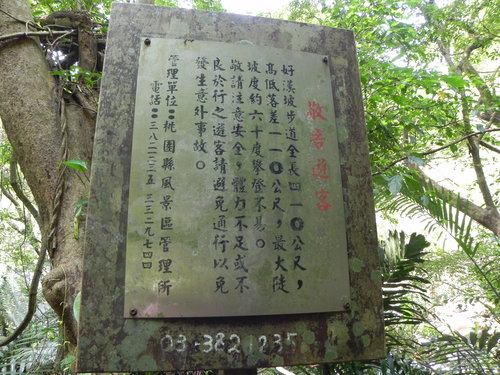 敬告遊客
好漢坡步道全長四一０公尺，
高低落差一一０公尺，最大陡
坡度約六十度攀登不易。
敬請注意安全，體力不足或不
良於行之遊客請避免通行以免
發生意外事故。
管理單位：桃園縣風景區管理所
電話：三八二一二三五 三三二九七四四
03-3821235